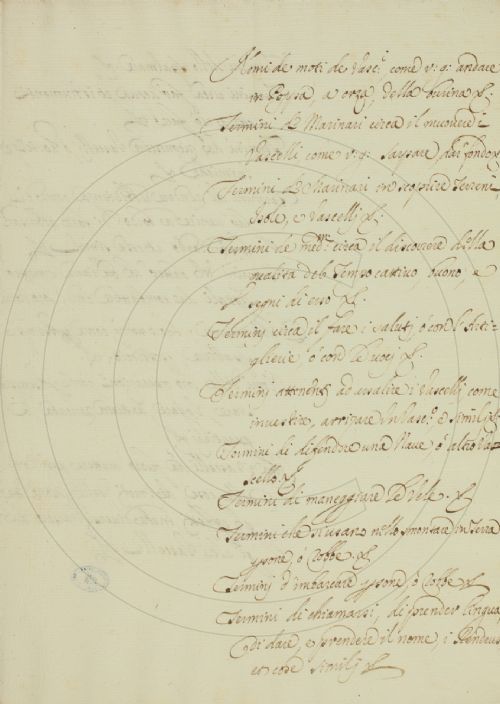 Nomi de moti de Vasc.i come v: g: andare
in Poppa, a orza, della burina &.
Termini de Marinari circa il muovere i
Vascelli come v: g: Sarpare, dar fondo &
Termini de Marinari in scoprire Terreni
Isole, e Vascelli &.
Termini de med.mi circa il discorrere della
qualità del Tempo cattivo buono, e
segni di esso &.
Termini circa il fare i saluti ò con l'Arti-
glierie ò con le voci &.
Termini attenenti ad assalire i Vascelli come
investire, arrivare in Vasc.o e Simili &
Termini di difendere una Nave ò altro Va-
scello &
Termini di maneggiare le Vele &
Termini che si usano nello smontare in Terra
psone, ò Robbe &
Termini d'imbarcare psone, ò Robbe &
Termini di chiamarsi, di prender lingua,
di dare, e prendere il nome, i
cose Simili &